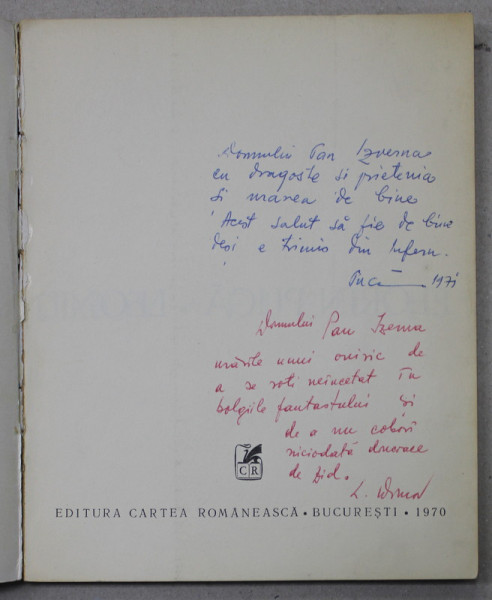 Domnului Pan Izverna
cu dragoste si prietenia
si urarea de bine
Acest salut să fie de bine
deși e trimis din Infern.
Pucă 1971
Domnului Pan Izverna
urările unui oniric de
a se roti neîncetat în
bolgiile fantasticului și
de a nu coborî
niciodată
de zid.
CR
EDITURA CARTEA ROMÂNEASCĂ • BUCUREȘTI • 1970